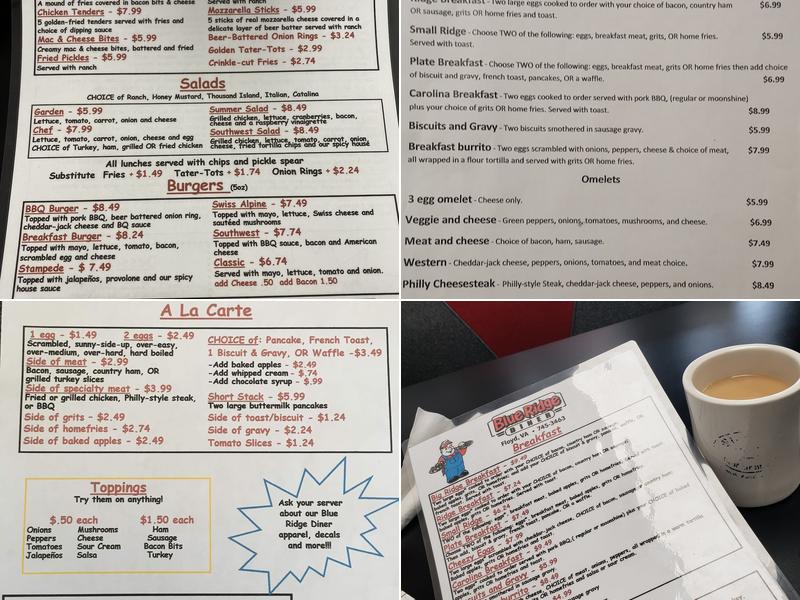 A mound of fries covered in bacon bits & cheese
Chicken Tenders - $7.99
5 golden-fried tenders served with fries and
choice of dipping sauce
Mac & Cheese Bites - $5.99
Creamy mac & cheese bites, battered and fried
Fried Pickles - $5.99
Served with ranch
Served with ranch
Mozzarella Sticks - $5.99
5 sticks of real mozzarella cheese covered in a
delicate layer of beer batter served with ranch
Beer-Battered Onion Rings - $3.24
Golden Tater-Tots - $2.99
Crinkle-cut Fries - $2.74
Salads
CHOICE of Ranch, Honey Mustord, Thousand Island, Italian, Catalina
Garden - $5.99
Lettuce, tomato, carrot, onion and cheese
Chef - $7.99
Lettuce, tomato, carrot, onion, cheese and egg
CHOICE of Turkey, ham, grilled OR fried chicken
Summer Salad - $8.49
Grilled chicken, lettuce, cranberries, bacon,
cheese and a raspberry vinaigrette
Southwest Salad - $8.49
Grilled chicken, lettuce, tomato, carrot, onion,
cheese, fried tortilla chips and our spicy house
All lunches served with chips and pickle spear
Substitute Fries + $1.49 Tater-Tots + $1.74 Onion Rings + $2.24
Burgers (5oz)
BBQ Burger - $8.49
Topped with pork BBQ, beer battered onion ring,
cheddar-jack cheese and BQ sauce
Breakfast Burger - $8.24
Topped with mayo, lettuce, tomato, bacon,
scrambled egg and cheese
Stampede - $ 7.49
Topped with jalapeños, provolone and our spicy
house sauce
Swiss Alpine - $7.49
Topped with mayo, lettuce, Swiss cheese and
sautéed mushrooms
Southwest - $7.74
Topped with BBQ sauce, bacon and American
cheese
Classic - $6.74
Served with mayo, lettuce, tomato and onion.
add Cheese .50 add Bacon 1.50
Ridge Breakfast - Two large eggs cooked to order with your choice of bacon, country ham
OR sausage, grits OR home fries and toast. $6.99
Small Ridge - Choose TWO of the following: eggs, breakfast meat, grits, OR home fries.
Served with toast. $5.99
Plate Breakfast - Choose TWO of the following: eggs, breakfast meat, grits OR home fries then add choice
of biscuit and gravy, french toast, pancakes, OR a waffle. $6.99
Carolina Breakfast - Two eggs cooked to order served with pork BBQ, (regular or moonshine)
plus your choice of grits OR home fries. Served with toast. $8.99
Biscuits and Gravy - Two biscuits smothered in sausage gravy. $5.99
Breakfast burrito - Two eggs scrambled with onions, peppers, cheese & choice of meat, $7.99
all wrapped in a flour tortilla and served with grits OR home fries.
Omelets
3 egg omelet - Cheese only. $5.99
Veggie and cheese - Green peppers, onions, tomatoes, mushrooms, and cheese. $6.99
Meat and cheese - Choice of bacon, ham, sausage. $7.49
Western - Cheddar-jack cheese, peppers, onions, tomatoes, and meat choice. $7.99
Philly Cheesesteak - Philly-style Steak, cheddar-jack cheese, peppers, and onions. $8.49
A La Carte
1 egg - $1.49 2 eggs - $2.49
Scrambled, sunny-side-up, over-easy,
over-medium, over-hard, hard boiled
Side of meat - $2.99
Bacon, sausage, country ham, OR
grilled turkey slices
Side of specialty meat - $3.99
Fried or grilled chicken, Philly-style steak,
or BBQ
Side of grits - $2.49
Side of homefries - $2.74
Side of baked apples - $2.49
CHOICE of: Pancake, French Toast,
1 Biscuit & Gravy, OR Waffle -$3.49
-Add baked apples - $2.49
-Add whipped cream - $.74
-Add chocolate syrup - $.99
Short Stack - $5.99
Two large buttermilk pancakes
Side of toast/biscuit - $1.24
Side of gravy - $2.24
Tomato Slices - $1.24
Toppings
Try them on anything!
$.50 each
Onions Mushrooms
Peppers Cheese
Tomatoes Sour Cream
Jalapeños Salsa
$1.50 each
Ham
Sausage
Bacon Bits
Turkey
Ask your server
about our Blue
Ridge Diner
apparel, decals
and more!!!
Blue Ridge
DINER
Floyd, VA • 745-3463
Breakfast
Big Ridge Breakfast - $9.49
Ridge Breakfast - $7.24
Small Ridge - $6.24
Plate Breakfast - $7.49
Cheezy Eggs - $7.99
Carolina Breakfast - $9.49